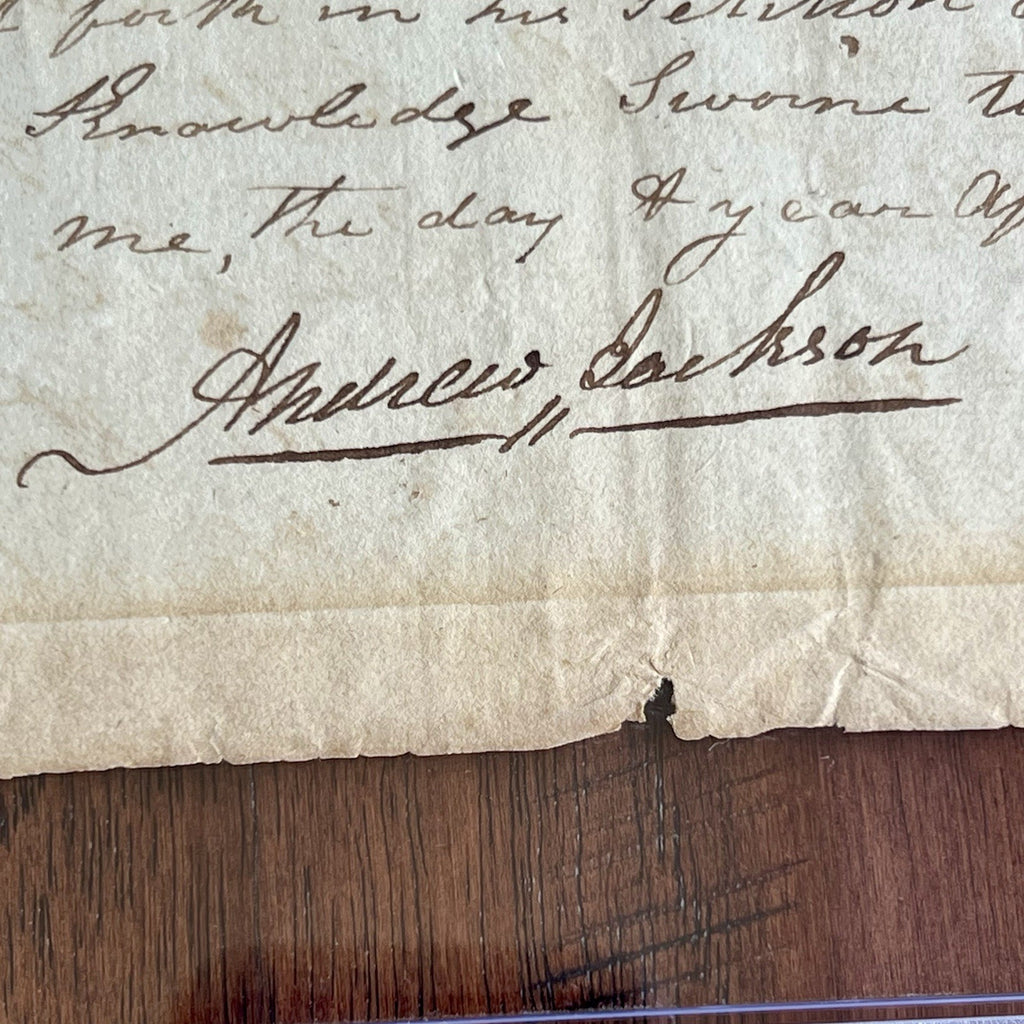 forth in his Petition
Knowledge Sworne to
me, the day & year
Andrew Jackson